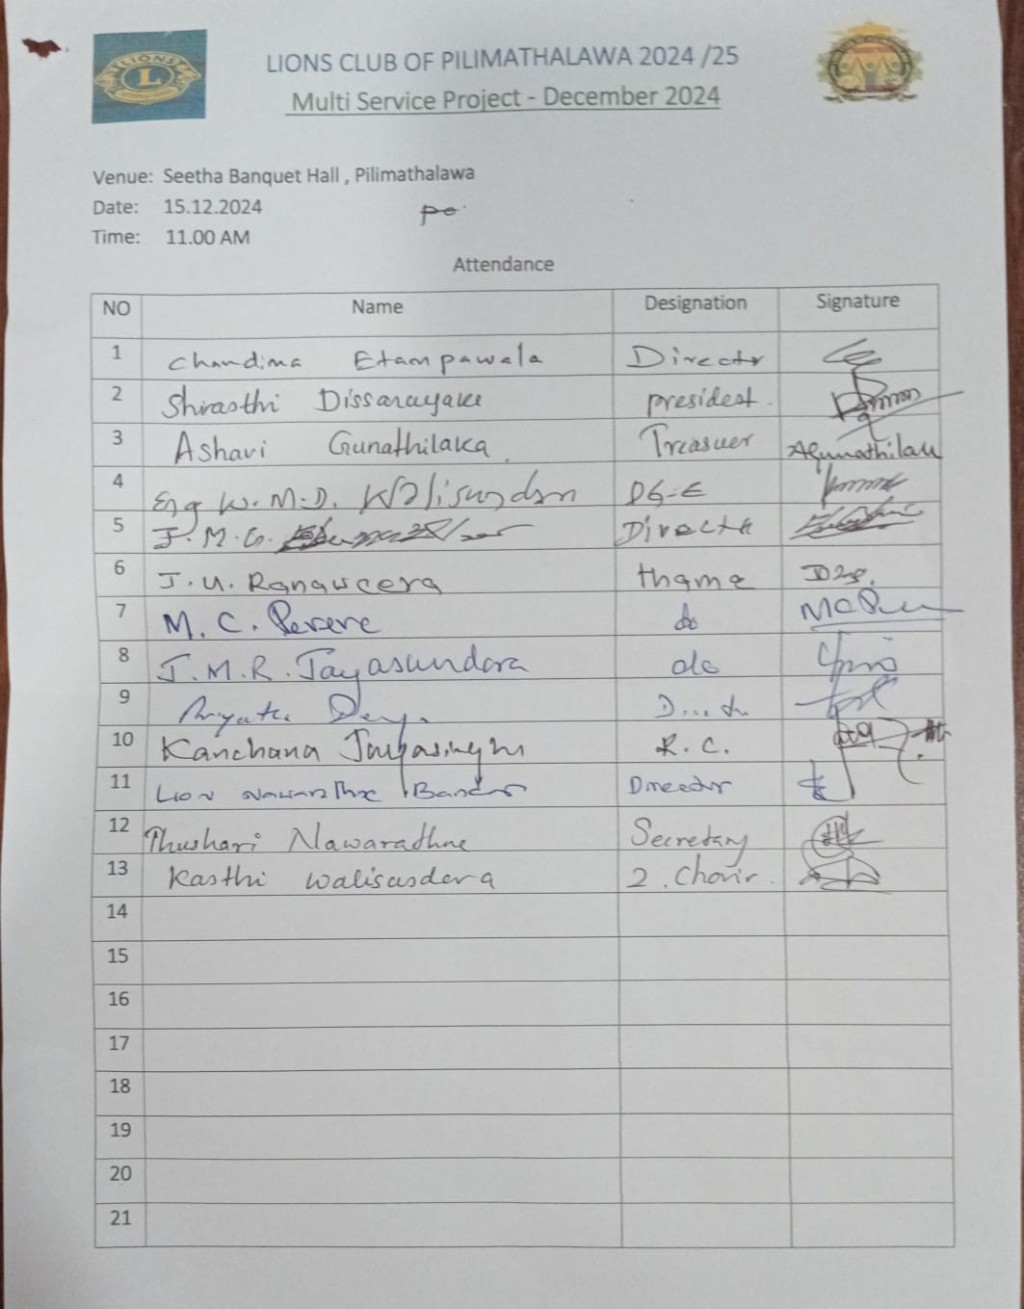 LIONS
L
LIONS CLUB OF PILIMATHALAWA 2024 /25
Multi Service Project - December 2024
Venue: Seetha Banquet Hall , Pilimathalawa
Date: 15.12.2024
po
Time: 11.00 AM
Attendance
NO Name Designation Signature
1 Chandima Etampawala Director
2 Shirasthi Dissanayake president.
3 Ashavi Gunathilaka. Treasurer AGunathilaka
4 Eng W.M.D. Walisundara DG-E
5 J.M.G. Director
6 J.U. Ranaweera thame
7 M.C. Perera do
8 J.M.R. Jayasundara do
9
10 Kanchana Jayasinghe R.C.
11 Lion Nawarathne Bandara Director
12 Thushari Nawarathne Secretary
13 Kasthi Walisundara 2. Chair.
14
15
16
17
18
19
20
21